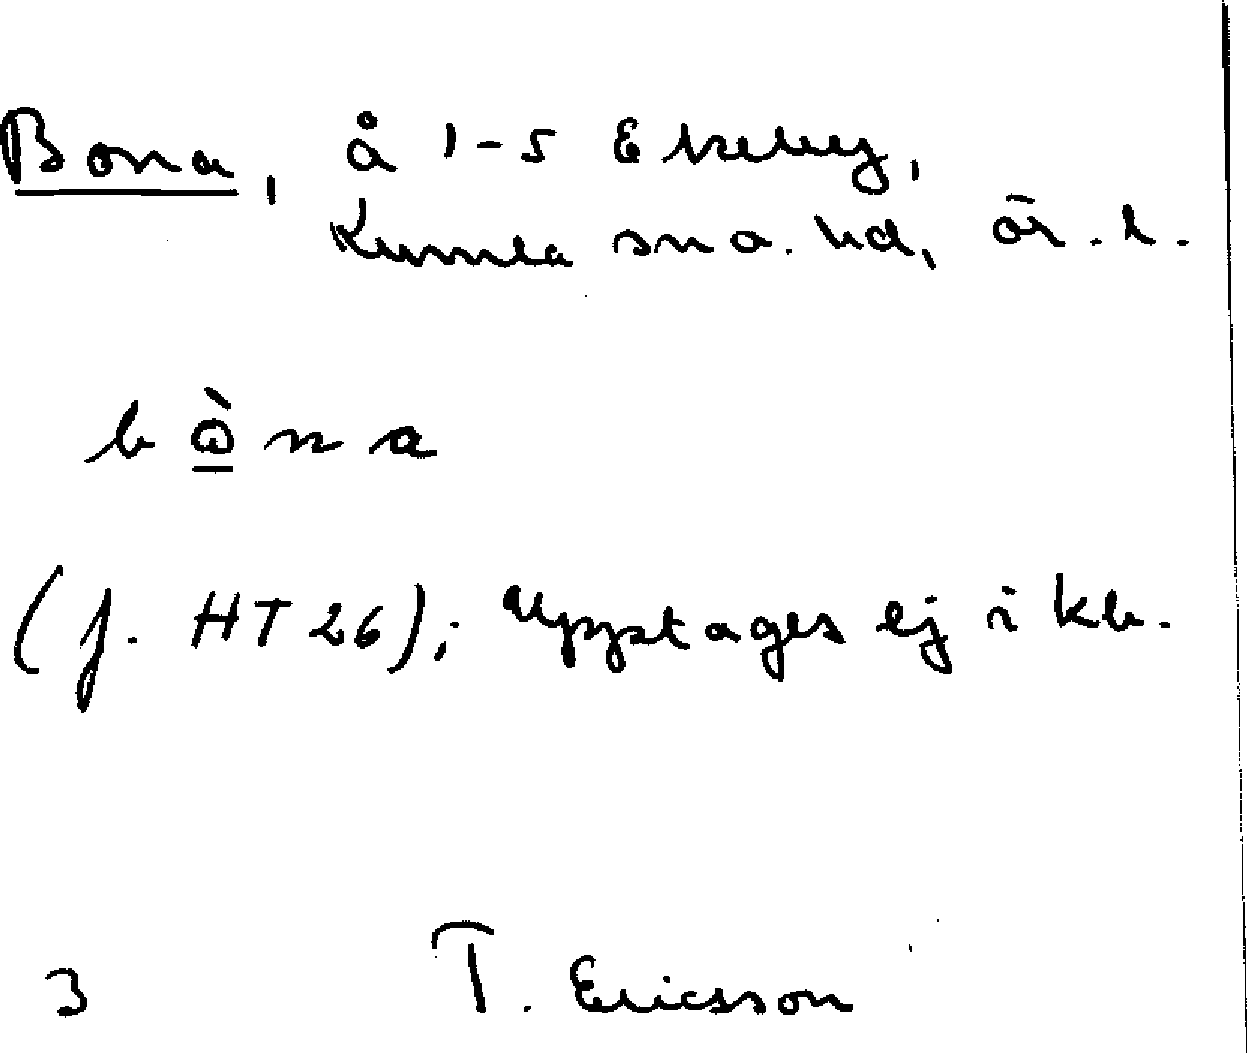 Bona, å 1-5 Ekeby,
Kumla sn o. hd, ör. l.
bòna
(f. HT 26); Upptages ej i kb.
3 T. Ericsson